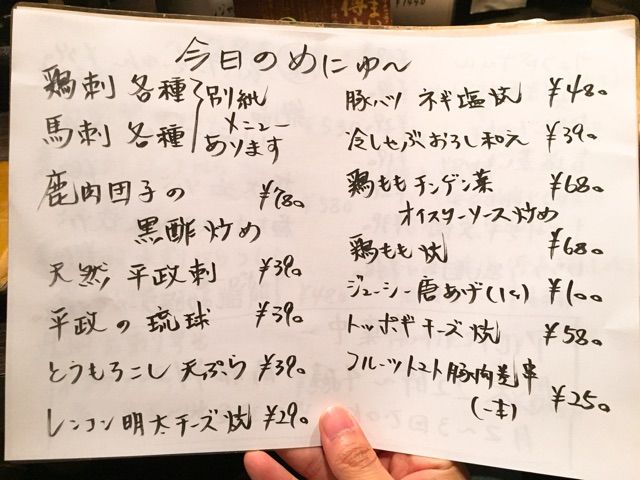 今日のめにゅ〜
鶏刺 各種
馬刺 各種
別紙
メニュー
あります
鹿肉団子の ¥780
黒酢炒め
天然 平政刺 ¥390
平政の琉球 ¥390
とうもろこし 天ぷら ¥390
レンコン明太チーズ焼 ¥290
豚ハツ ネギ塩焼 ¥480
冷しゃぶおろし和え ¥390
鶏ももチンゲン菜 ¥680
オイスターソース炒め
鶏もも焼 ¥680
ジューシー唐あげ(1ヶ) ¥100
トッポギチーズ焼 ¥580
フルーツトマト豚肉巻串
(一本) ¥250